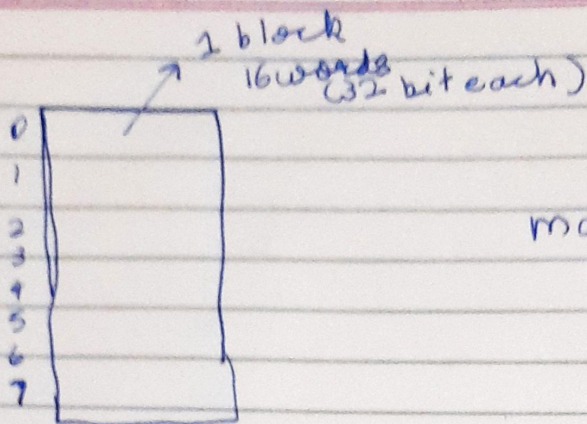 1 block
16 words
(32 bit each)
0
1
2
3
4
5
6
7